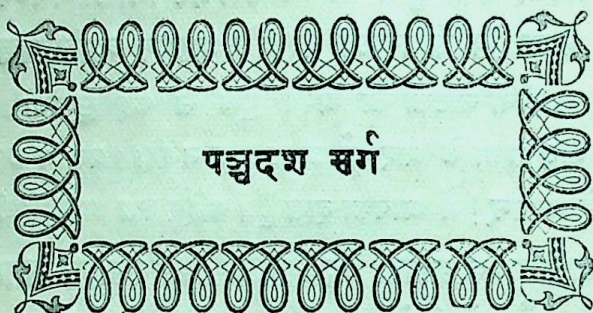 पञ्चदश सर्ग